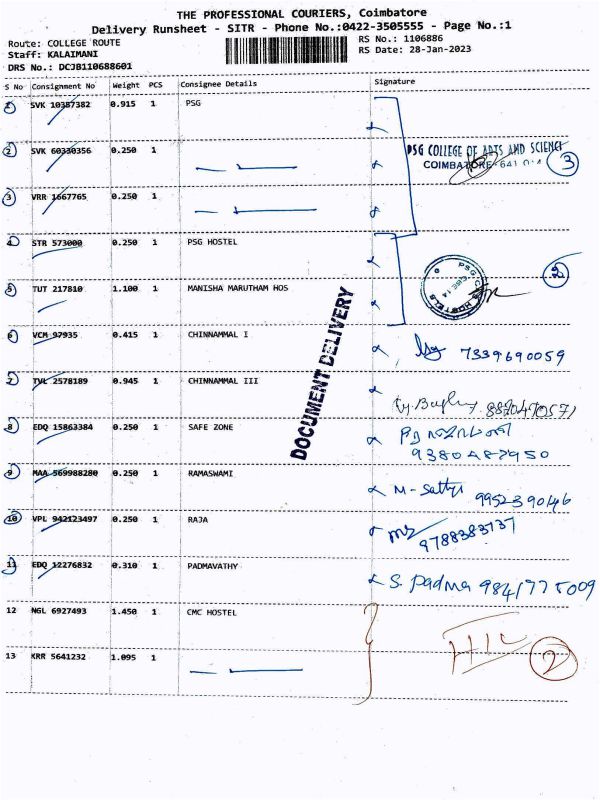 THE PROFESSIONAL COURIERS, Coimbatore
Delivery Runsheet - SITR - Phone No.:0422-3505555 - Page No.:1
Route: COLLEGE ROUTE
RS No.: 1106886
Staff: KALAIMANI
RS Date: 28-Jan-2023
DRS No.: DCJB110688601
S No Consignment No Weight PCS Consignee Details Signature
1 SVK 10357382 0.915 1 PSG
2 SVK 60330356 0.250 1 PSG COLLEGE OF ARTS AND SCIENCE
COIMBATORE-641 014 3
3 VRR 1667765 0.250 1
4 STR 573000 0.250 1 PSG HOSTEL
5 TUT 217810 1.100 1 MANISHA MARUTHAM HOS 2
6 VCM 97935 0.415 1 CHINNAMMAL I 7339690059
7 TVL 2578189 0.945 1 CHINNAMMAL III
8 EDQ 15863384 0.250 1 SAFE ZONE
9380487950
9 MAA 569988280 0.250 1 RAMASWAMI M-Sathya 9952390146
10 VPL 942123497 0.250 1 RAJA
9788383737
11 EDQ 12276832 0.310 1 PADMAVATHY S. Padma 9841775009
12 NGL 6927493 1.450 1 CMC HOSTEL
13 KRR 5641232 1.095 1 2
DOCUMENT DELIVERY